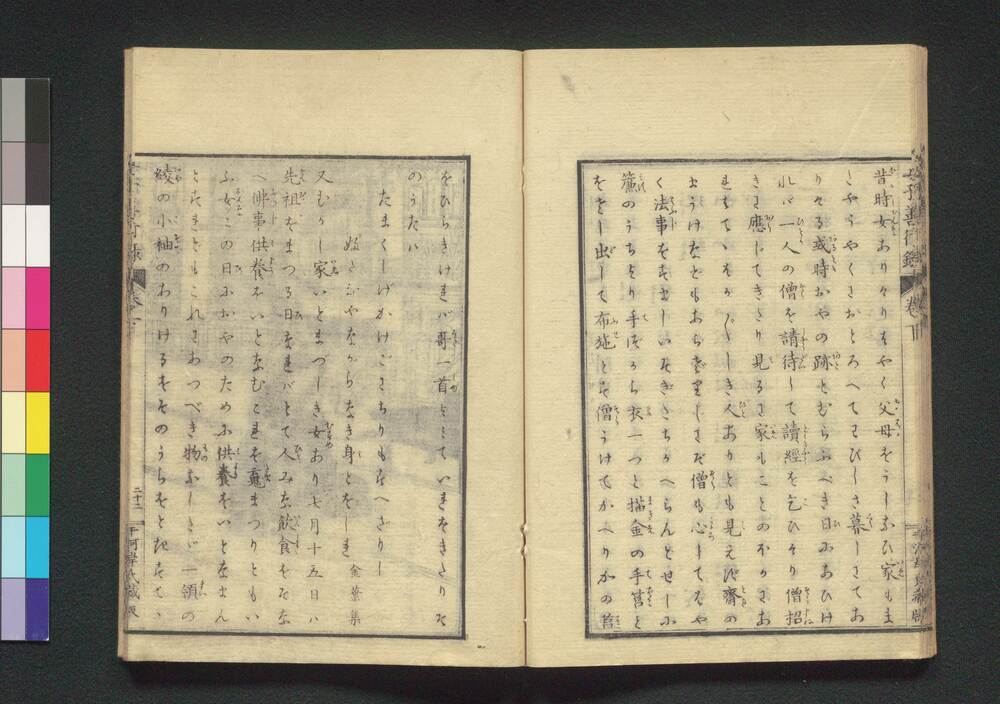 昔時女ありけりはやく父母をうしなひ家もま
ことやうやくにおとろへてわびしさ暮しさてあ
りける或時おやの跡とむらふべき日にあひけ
れバ一人の僧を請待して讀經を乞ひそり僧招
きに應じてきたり見るに家もことのほかにあ
れはてゝはか〴〵しき人ありとも見えず齋の
まうけなどもあらざりしにぞ僧も心してはや
く法事をすましいそぎたちかへらんとせしに
簾のうちより手づから衣一つと描金の手筥と
をさし出して布施とす僧うけてかへりかの筥
をひらきければ哥一首をそへていれおきたりそ
のうたハ
たまくしげかけごにちりもすへざりし
ふたおやながらなき身とをしれ 金葉集
又むかし家いとまづしき女あり七月十五日ハ
先祖をまつる日なればとて人みな飲食をそな
へ佛事供養をいとなむこれを魂まつりともい
ふ女この日におやのために供養をいとなまん
とすれどもこれにあつべき物なしたゞ一領の
綾の小袖のありけるをそのうらをときさゝ
女子善行錄
卷下
二十二